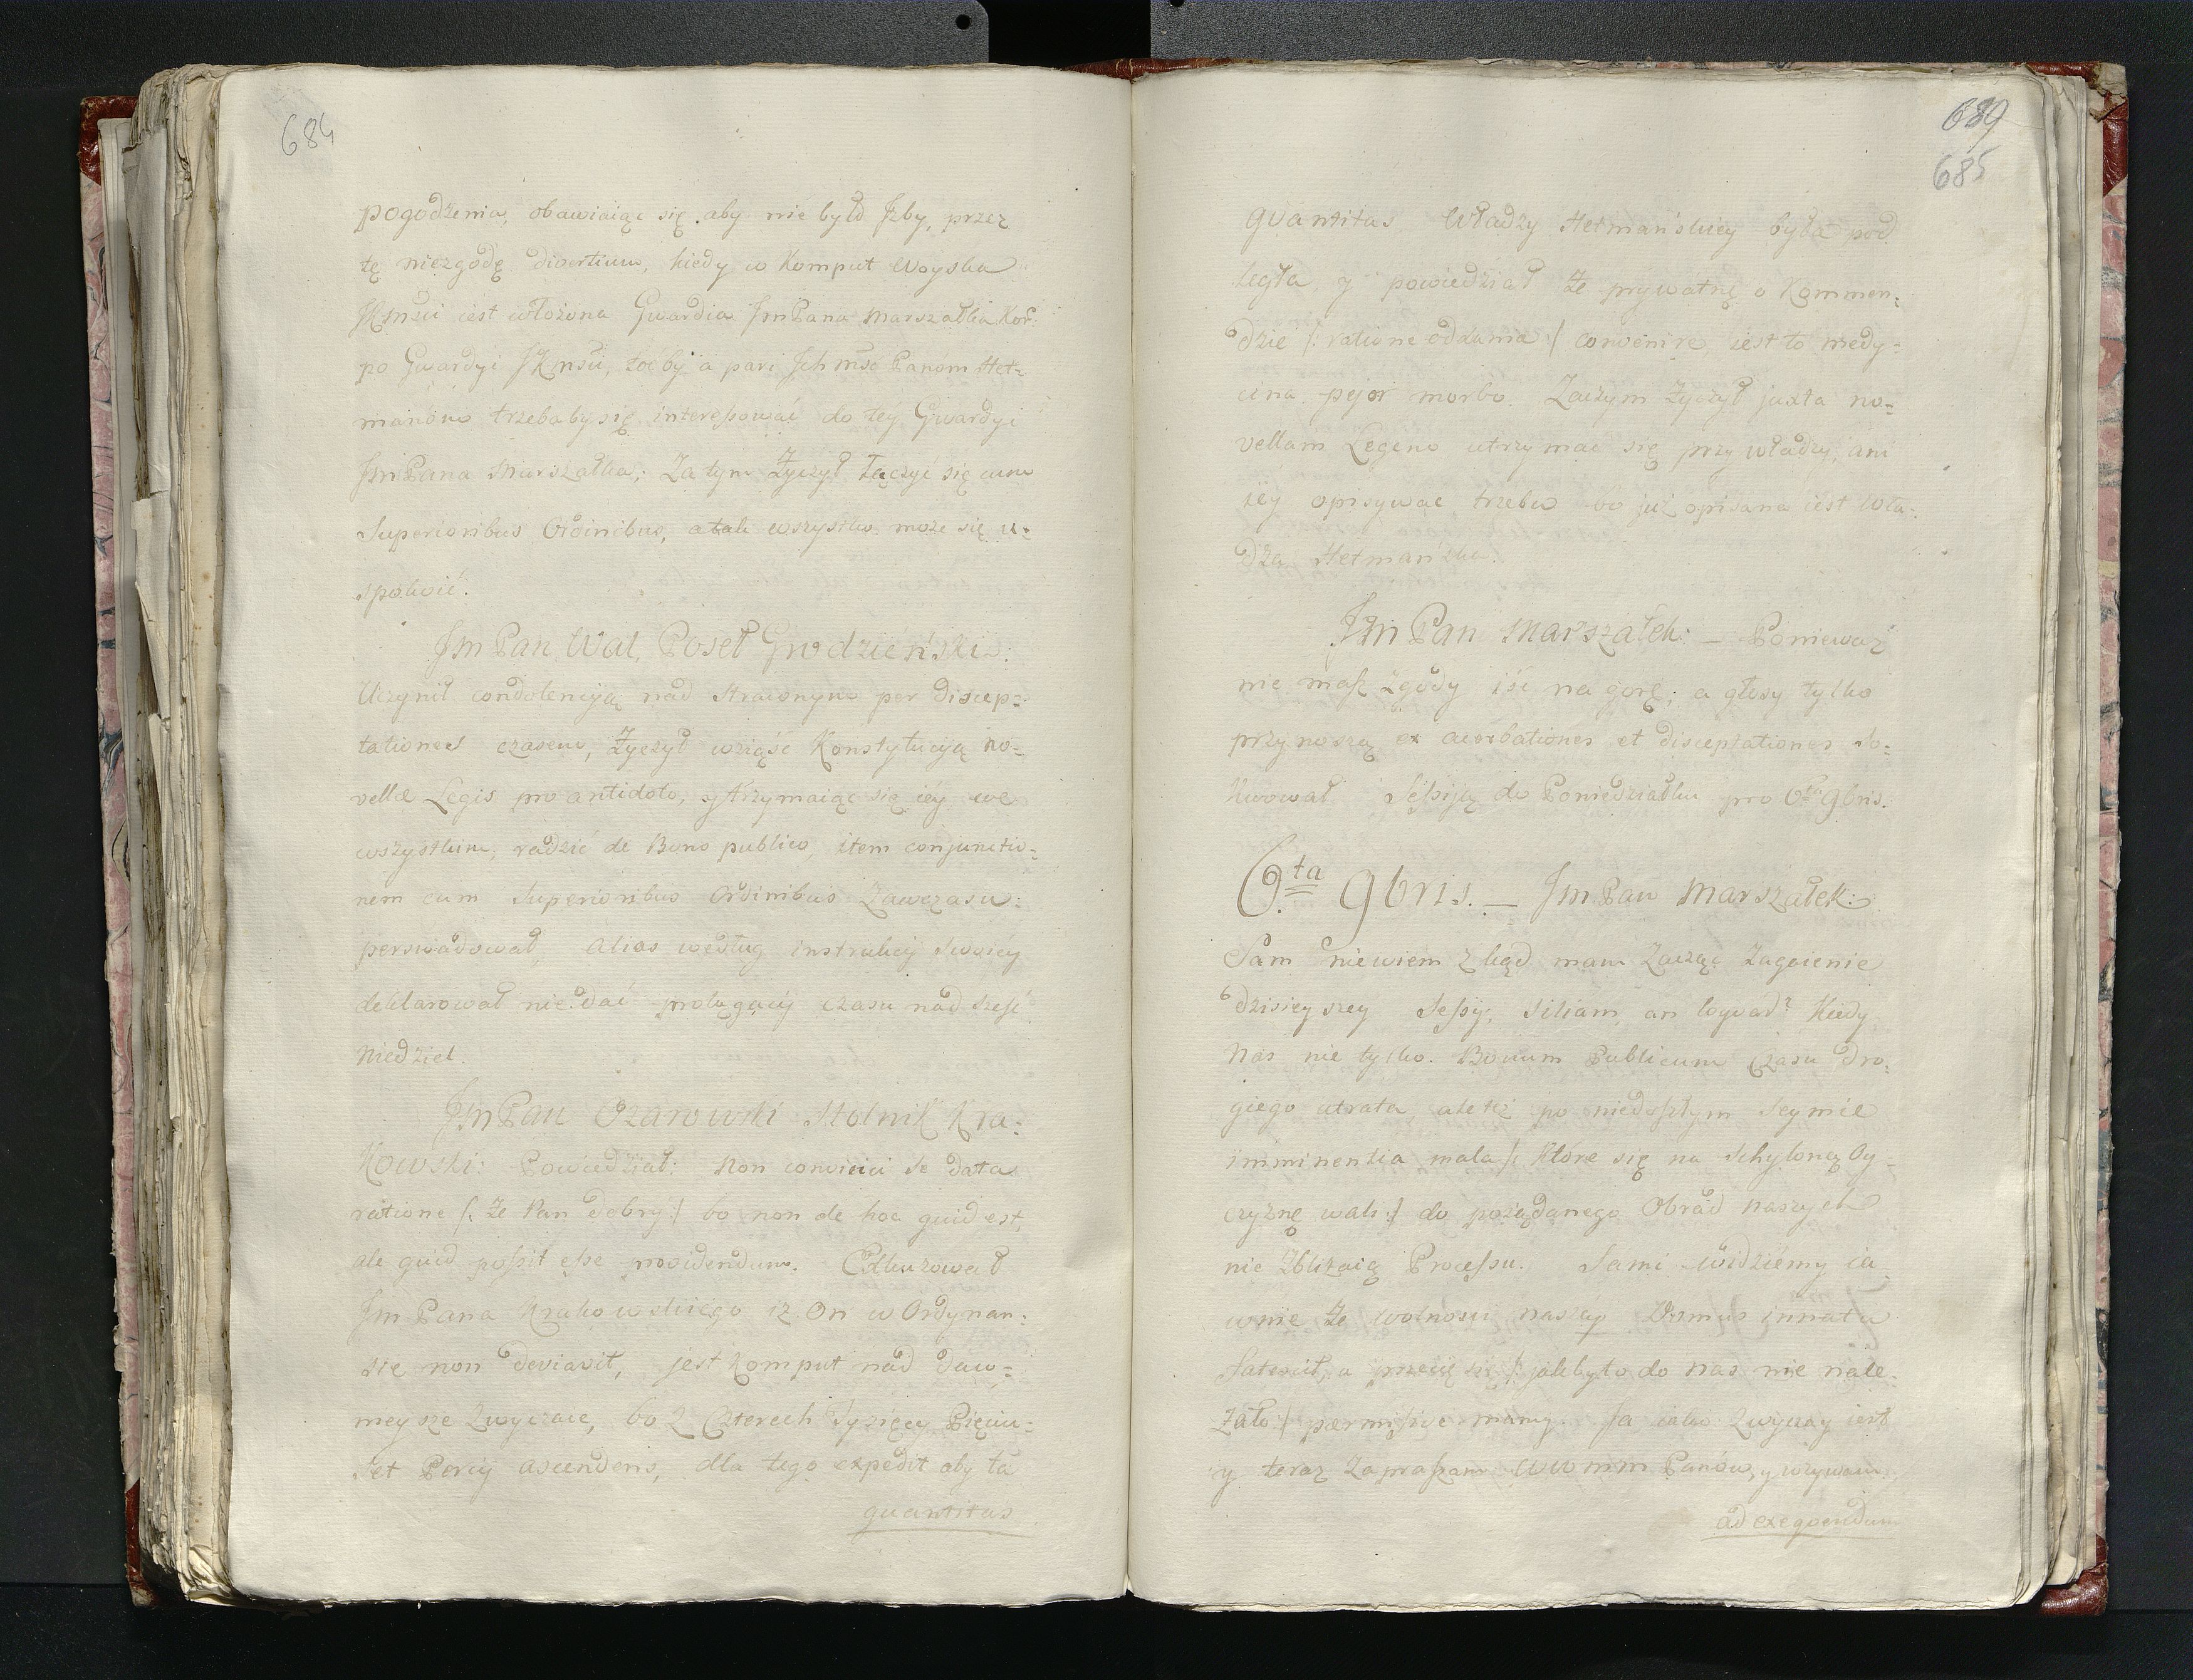 684
pogodzenia, obawiaiąc się aby nie było Izby, przez
tę niezgodę divortium, kiedy w Komput Woyska
JKMśći iest włożona Gwardia JmPana Marszałka Kor:
po Gwardyi JKMśći, toć by a pari Ich mśc Panóm Het=
manóm trzebaby się interessować do tey Gwardyi
JmPana Marszałka; Zatym Życzył Łączyć się cum
Superioribus Ordinibus, a tak wszystko może się u=
spokoić.
Jm Pan Wal. Poseł Grodzieński:
Uczynił condolencyą nad straconym per discep=
tationes czasem, Życzył wziąść Konstytucyą no=
vellæ Legis pro antidoto, y trzymaiąc się iey we
wszystkim, radzić de Bono publico, item conjunctio=
nem cum Superioribus Ordinibus Zawczasu
perswadował, alias według instrukcij swoiey
deklarował nie dać prolągacij czasu nad sześć
Niedziel.
JmPan Ożarowski Stolnik Kra=
kowski: Powiedział: Non convici se data
ratione /: że Pan dobry :/ bo non de hoc quid est,
ale quid possit esse providendum. Exkuzował
Jm Pana Krakowskiego iż On w Ordynan=
sie non deviavit, jest komput nad daw=
nieysze zwyczaie, bo z Czterech Tysięcy Pięciu=
set Porcij ascendens, dla tego expedit aby ta
quantitas
689
685
quantitas Władzy Hetmańskiey była pod
legła, y powiedział że prywatnę o Kommen=
dzie /: ratione oddania :/ convenire iest to medy=
cina pejor morbo. Zaczym Życzył juxta no=
vellam Legem utrzymać się przy władzy, ani
iey opisywać trzeba bo już opisana iest Wła=
dza Hetmańska.
Jm Pan Marszałek: – Ponieważ
nie masz zgody iść na gorę; a głosy tylko
przynoszą exacerbationes et disceptationes so=
lwował Sessyją do Poniedziałku pro 6ta 9bris.
6.ta 9bris. – Jm Pan Marszałek:
Sam niewiem zkąd mam Zacząć zagaienie
dzisieyszey Sessyi, siliam, an loquar? Kiedy
Nas nie tylko Bonum Publicum czasu dro=
giego utrata, ale też po niedoszłym Seymie
imminentia mala /: które się na schyloną Oy=
czyznę walą :/ do pożądanego Obrad naszych
nie zbliżaią Processu. Sami widziemy ia
wnie że wolnosci naszey Domus innata
fatescit, a przecię się /: jakby to do nas nie nale=
żało :/ permissive mamy. Ja iako zwyczay iest
y teraz zapraszam WWMM Panów, y wzywam
ad exequendum